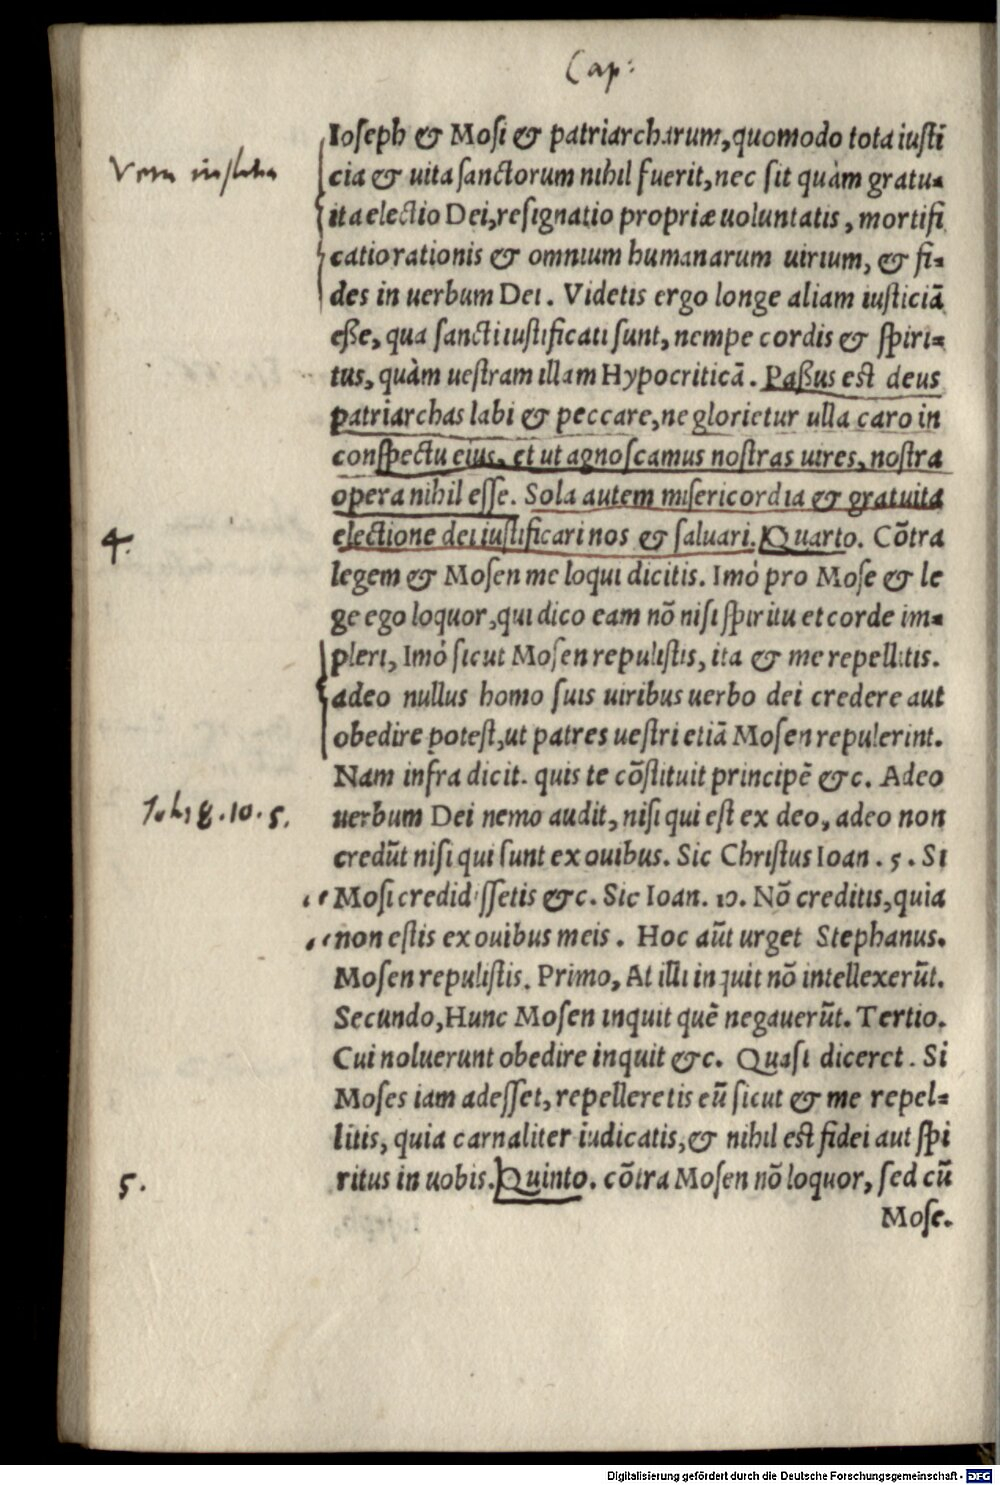 Cap:
Ioseph & Mosi & patriarcharum, quomodo tota iusti
Vera iustitia
cia & uita sanctorum nihil fuerit, nec sit quàm gratu-
ita electio Dei, resignatio propriæ uoluntatis, mortifi
catio rationis & omnium humanarum uirium, & fi-
des in uerbum Dei. Videtis ergo longe aliam iusticiā
eße, qua sancti iustificati sunt, nempe cordis & spiri-
tus, quàm uestram illam Hypocriticā. Paßus est deus
patriarchas labi & peccare, ne glorietur ulla caro in
conspectu eius, et ut agnoscamus nostras uires, nostra
opera nihil esse. Sola autem misericordia & gratuita
4.
electione dei iustificari nos & saluari. Quarto. Cōtra
legem & Mosen me loqui dicitis. Imò pro Mose & le
ge ego loquor, qui dico eam nō nisi spiritu et corde im-
pleri, Imò sicut Mosen repulistis, ita & me repellitis.
adeo nullus homo suis uiribus uerbo dei credere aut
obedire potest, ut patres uestri etiā Mosen repulerint.
Nam infra dicit. quis te cōstituit principē &c. Adeo
Joh: 8.10.5.
uerbum Dei nemo audit, nisi qui est ex deo, adeo non
credūt nisi qui sunt ex ouibus. Sic Christus Ioan. 5. Si
Mosi credidissetis &c. Sic Ioan. 10. Nō creditis, quia
non estis ex ouibus meis. Hoc aūt urget Stephanus.
Mosen repulistis. Primo, At illi inquit nō intellexerūt.
Secundo, Hunc Mosen inquit quē negauerūt. Tertio.
Cui noluerunt obedire inquit &c. Quasi diceret. Si
Moses iam adesset, repelleretis eū sicut & me repel-
litis, quia carnaliter iudicatis, & nihil est fidei aut spi
5.
ritus in uobis. Quinto. cōtra Mosen nō loquor, sed cū
Mose.
Digitalisierung gefördert durch die Deutsche Forschungsgemeinschaft - DFG